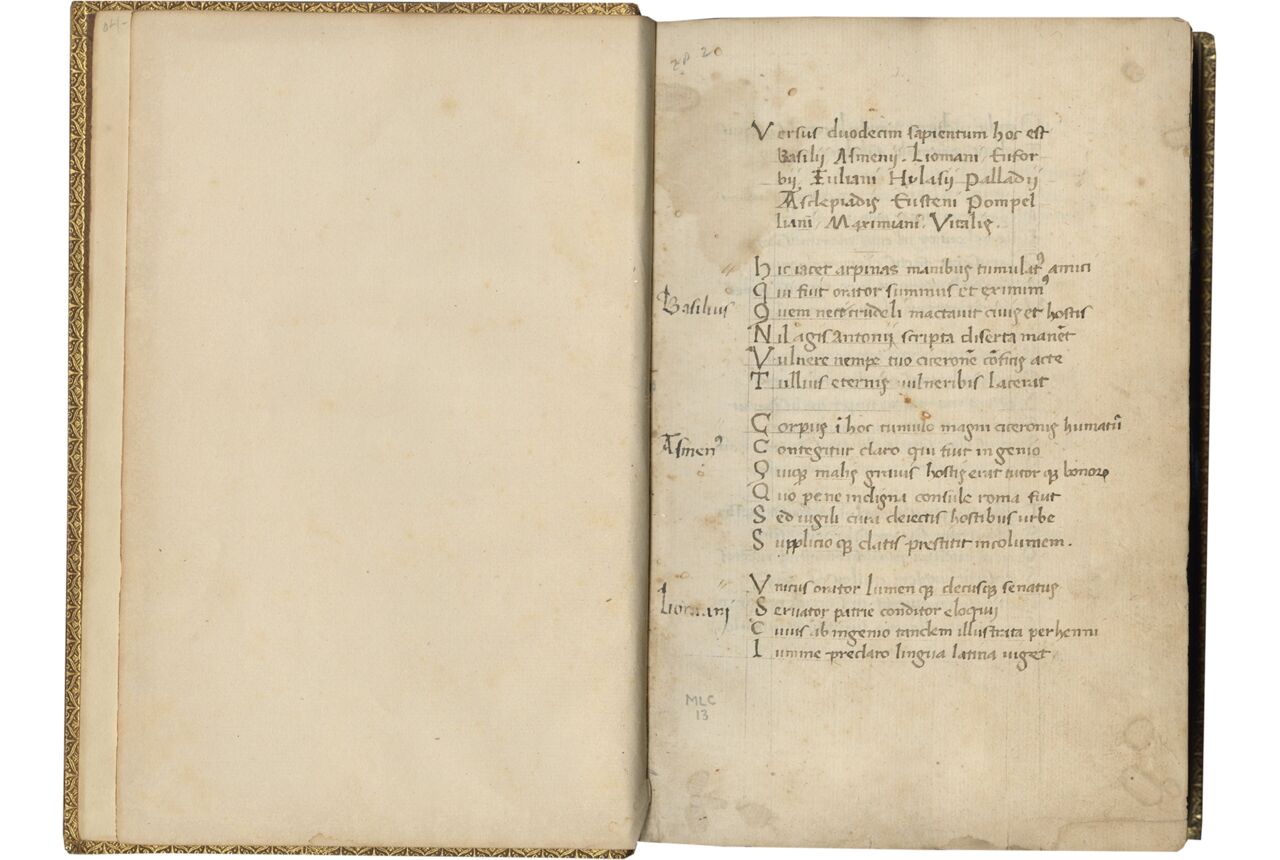 28 20
Versus duodecim sapientum hoc est
Basilii Asmenii. Liomani Eufor
bii Iuliani Hylasii Palladii
Asclepiadis Eusteni Pompel
liani Maximiani Vitalis.
Basilius
Hic iacet arpinas manibus tumulatꝰ amici
Qui fuit orator summus et eximiuꝰ
Quem nece crudeli mactauit ciuis et hostis
Nil agis antonii scripta diserta manēt
Vulnere nempe tuo ciceronē cōficis acte
Tullius eternis vulneribis lacerat
Asmenꝰ
Corpus ī hoc tumulo magni ciceronis humatū
Contegitur claro qui fuit ingenio
Quiqꝫ malis grauis hostis erat tutor qꝫ bonoꝝ
Quo pene indigna consule roma fuit
Sed uigili cura deiectis hostibus urbe
Supplicio qꝫ datis prestitit incolumem.
Liomani
Vnicus orator lumen qꝫ decusqꝫ senatus
Seruator patrie conditor eloquii
Cuius ab ingenio tandem illustrata perhenni
Lumine preclaro lingua latina uiget
MLC
13